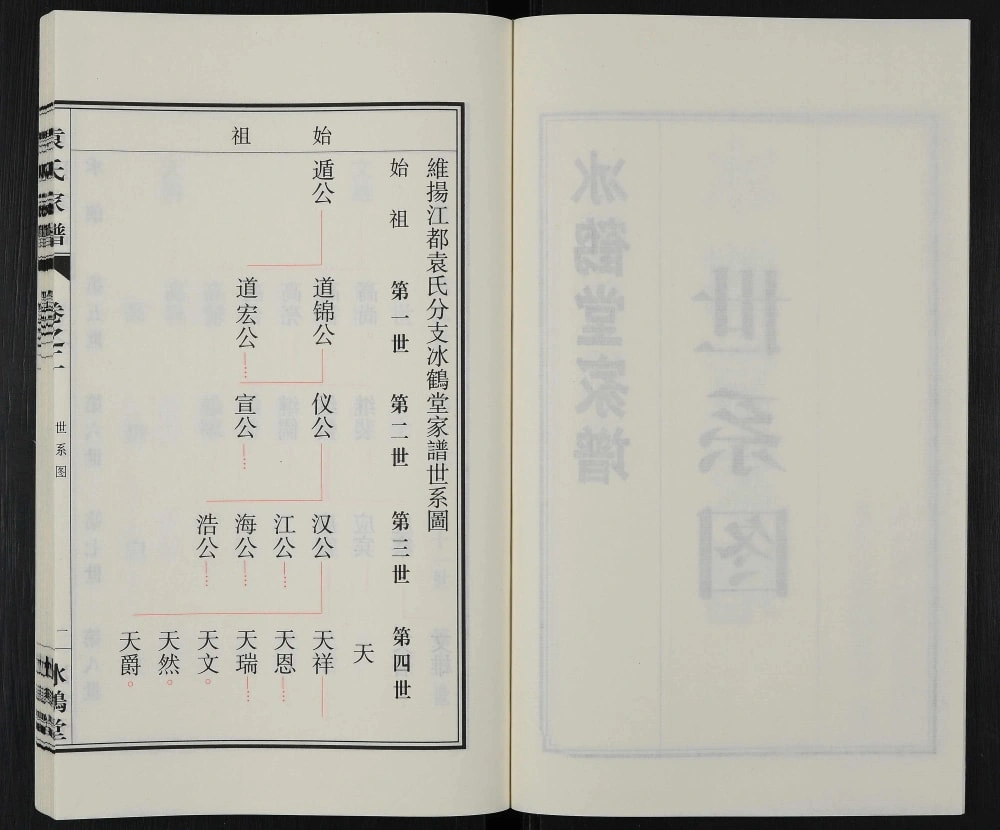 維揚江都袁氏分支冰鶴堂家譜世系圖
始祖
始祖
遁公
第一世
道锦公
道宏公
第二世
仪公
宣公
第三世
汉公
江公
海公
浩公
第四世
天
天祥
天恩
天瑞
天文
天然
天爵
袁氏家譜
卷之二
世系图
二
冰鶴堂
冰鹤堂家谱
世系图